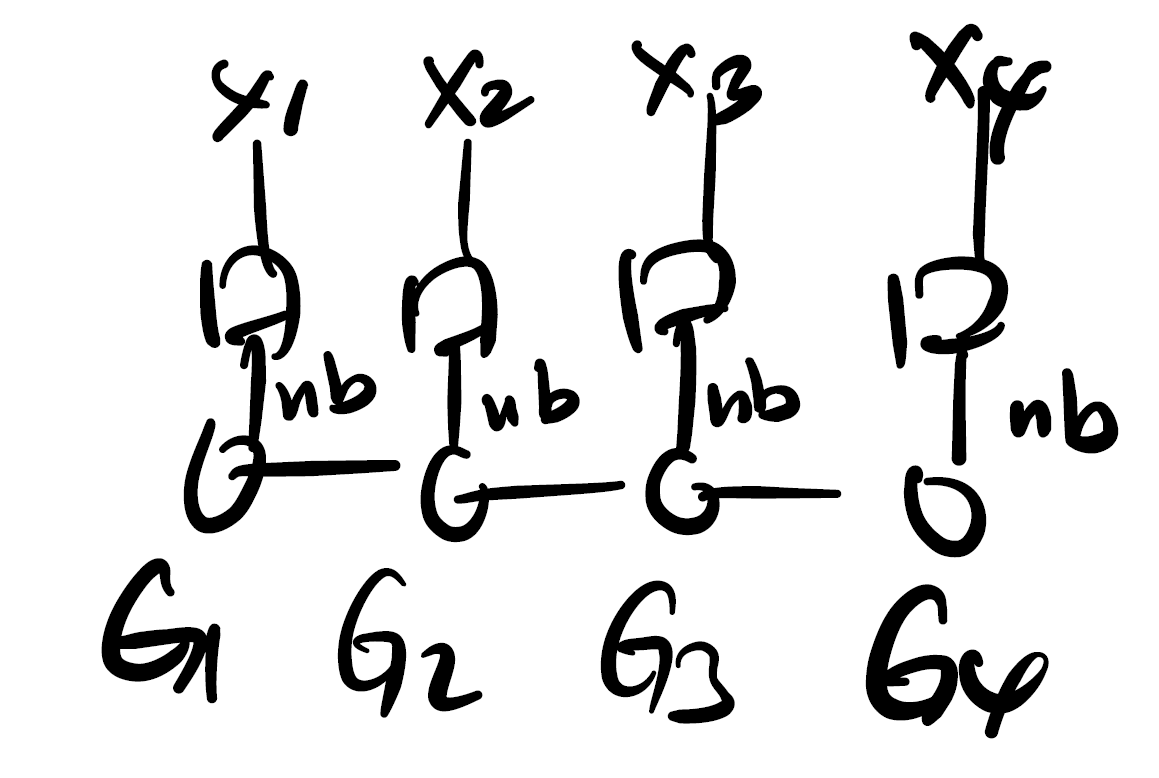 X1 X2 X3 X4
nb nb nb nb
G1 G2 G3 G4